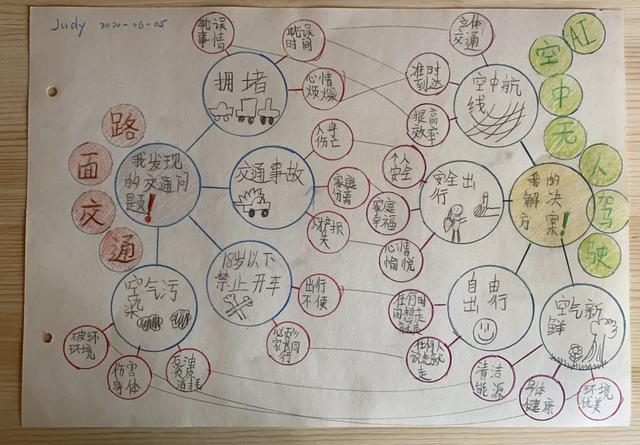 Judy 2020-06-05
路
面
交
通
我发现
的交通问
题!
拥堵
耽误
事情
耽误
时间
心情
烦燥
交通事故
人身
伤亡
家庭
财产损
失
18岁以下
禁止开车
出行
不便
空气污
染
破坏
环境
伤害
身体
石油
AI
空
中
无
人
驾
驶
我的
解决
方案!
空中航
线
立体
交通
准时
到达
提高
效率
安全出
行
个人
安全
家庭
幸福
心情
愉悦
自由
出行
任何时
任何人
走
空气新
鲜
清洁
能源
身体
健康
环境
优美